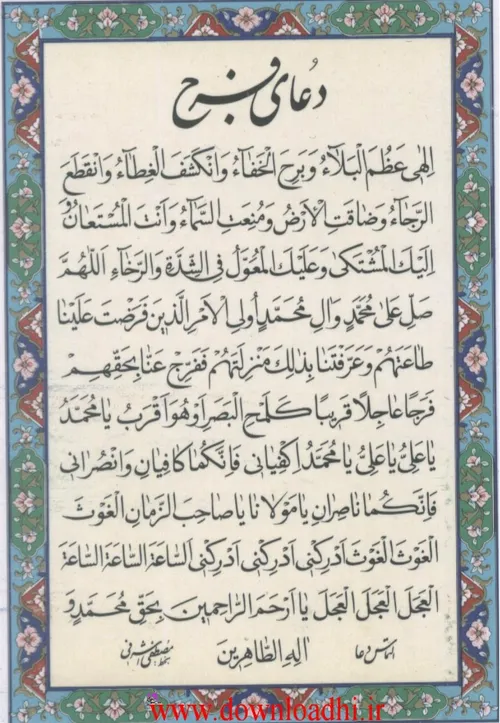 دُعای فرج
اِلٰهی عَظُمَ الْبَلٰآءُ وَبَرِحَ الْخَفٰآءُ وَانْكَشَفَ الْغِطٰآءُ وَانْقَطَعَ
الرَّجٰآءُ وَضٰاقَتِ الْاَرْضُ وَمُنِعَتِ السَّمٰآءُ وَاَنْتَ الْمُسْتَعٰانُ وَ
اِلَيْكَ الْمُشْتَكىٰ وَعَلَيْكَ الْمُعَوَّلُ فِی الشِّدَّةِ وَالرَّخٰآءِ اَللّٰهُمَّ
صَلِّ عَلىٰ مُحَمَّدٍ وَاٰلِ مُحَمَّدٍ اُولِی الْاَمْرِ الَّذينَ فَرَضْتَ عَلَيْنٰا
طٰاعَتَهُمْ وَعَرَّفْتَنٰا بِذٰلِكَ مَنْزِلَتَهُمْ فَفَرِّجْ عَنّٰا بِحَقِّهِمْ
فَرَجًا عٰاجِلًا قَريبًا كَلَمْحِ الْبَصَرِ اَوْ هُوَ اَقْرَبُ يٰا مُحَمَّدُ
يٰا عَلِیُّ يٰا عَلِیُّ يٰا مُحَمَّدُ اِكْفِيٰانی فَاِنَّكُمٰا كٰافِيٰانِ وَانْصُرٰانی
فَاِنَّكُمٰا نٰاصِرٰانِ يٰا مَوْلٰانٰا يٰا صٰاحِبَ الزَّمٰانِ الْغَوْثَ
الْغَوْثَ الْغَوْثَ اَدْرِكْنی اَدْرِكْنی اَدْرِكْنی اَلسّٰاعَةَ السّٰاعَةَ السّٰاعَةَ
الْعَجَلَ الْعَجَلَ الْعَجَلَ يٰا اَرْحَمَ الرّٰاحِمينَ بِحَقِّ مُحَمَّدٍ وَ
التماس دعا اٰلِهِ الطّٰاهِرينَ بخط: مصطفی اشرفی
www.downloadhi.ir